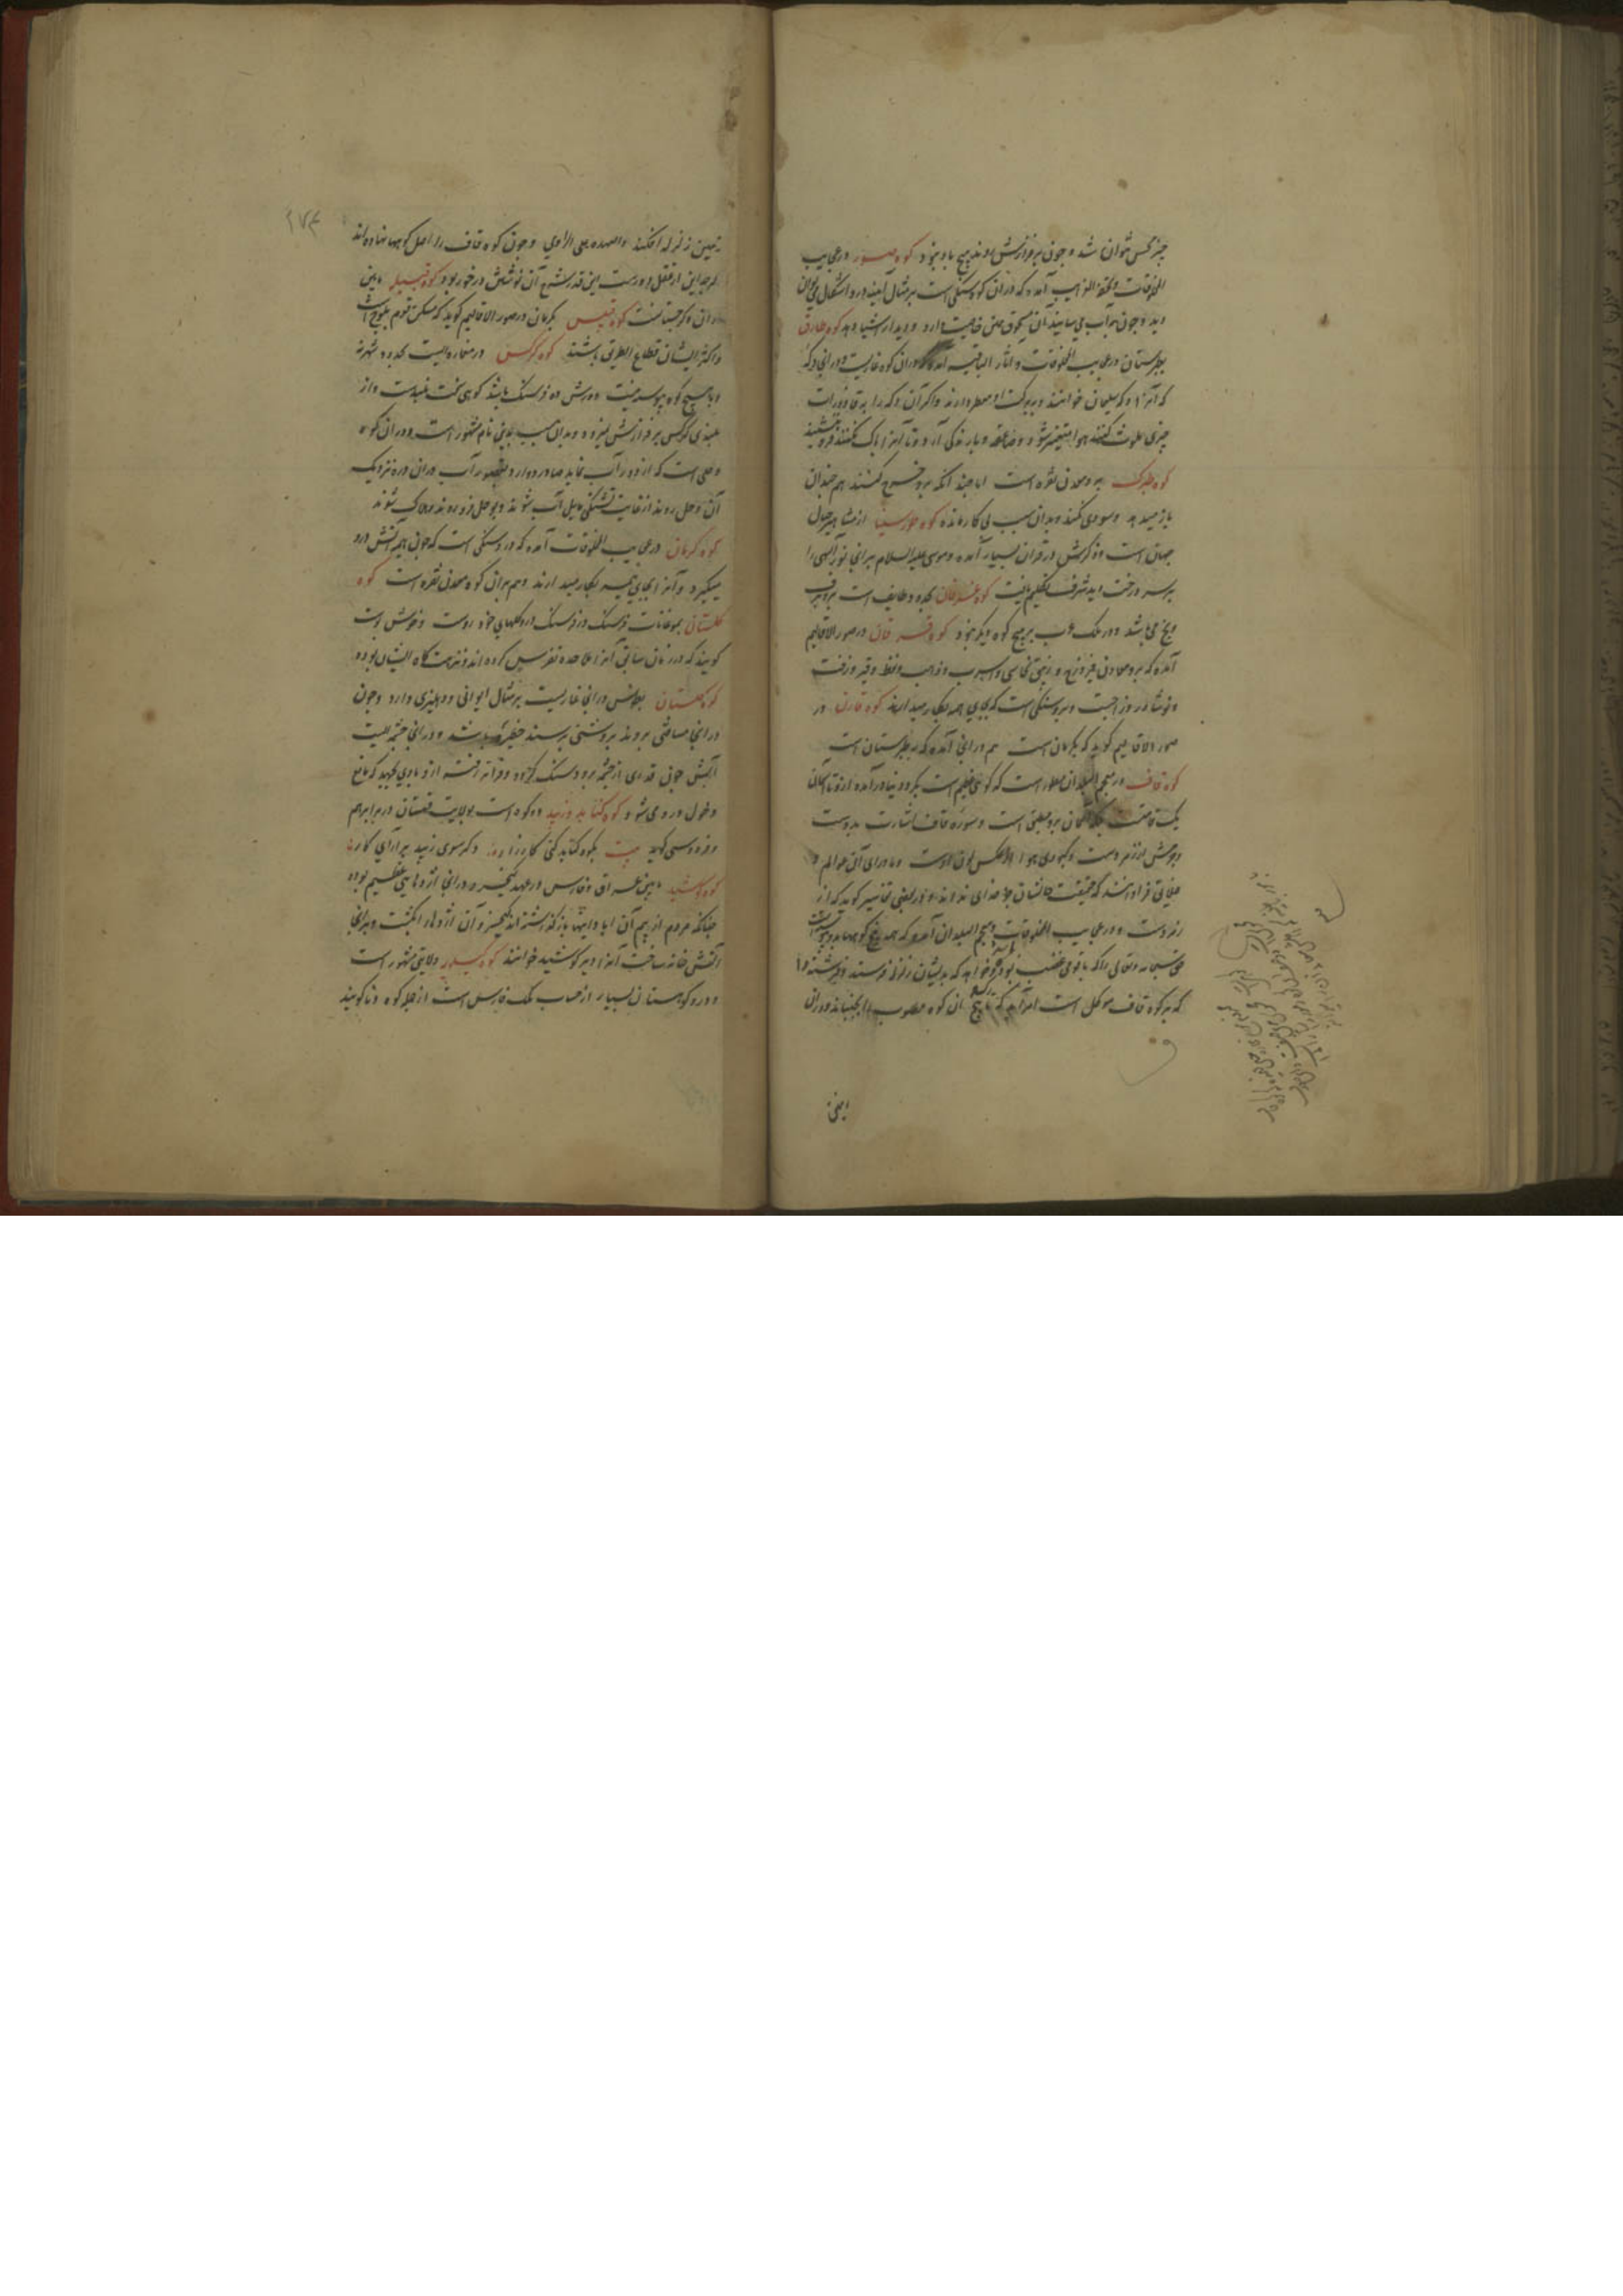 چیز کس نتوان شد و چون بر فرازش روند هیچ باد نبود کوه صور در عجایب
المخلوقات و تحفة الغرایب آمده که در آن کوه سنگی است بر مثال آینه در و اشکال می توان
دید و چون به آب می سایند آن مسحوق همین خاصیت دارد و دیدار اشیا دهد کوه طارق
بطبرستان در عجایب المخلوقات و آثار الباقیه آمده که در آن کوه غاریست و در آنجا دکه
که آنرا دکه سلیمان خوانند و به بزرگ و معطر دارند و اگر آن دکه را به قاذورات
چیزی ملوث کنند هوا متغیر شود و صاعقه و بارندگی آرد و تا آنرا پاک نکنند فرو ننشیند
کوه طبرک برو معدن نقره است اما چند آنکه برو خرج کنند هم چندان
باز میدهد و سودی نکند و بدان سبب بی کار مانده کوه طور سینا از مشاهیر جبال
جهان است و ذکرش در قران بسیار آمده و موسی علیه السلام بر آنجا نور الهی را
بر سر درخت دید شرف تکلیم یافت کوه غزوان بحدود طایف است برو برف
و یخ می باشد و در ملک عرب بر هیچ کوه دیگر نبود کوه فرغانه در صور الاقالیم
آمده که برو معادن فیروزه و زیبق نحاس و اسرب و ذهب و نفط و قیر و زفت
و نوشادر و زاجست و برو سنگی است که بجای همه بکار میدارند کوه قارن در
صور الاقالیم گوید که بکرمان است هم در آنجا آمده که بطبرستان است
کوه قاف در معجم البلدان مسطور است که کوهی عظیم است بگرد دنیا در آمده ازو تا آسمان
یک قامت بلکه آسمان برو مطبق است و سوره قاف اشارت بدوست
و جرمش از زمرد است و کبودی هوا از عکس لون اوست و ما ورای آن عوالم و
خلایق فراوانند که حقیقت حالشان جز خدای نداند و در بعضی تفاسیر گوید که از
زمرد است و در عجایب المخلوقات و معجم البلدان آمده که همه بیخ کوهها بدو پیوسته است
حق سبحانه و تعالی را که با قومی غضب بود و خواهد که بدیشان زلزله فرستد و فرشته را
که بر کوه قاف موکل است امر آید که تا رگ و بیخ آن کوه مطلوب را بجنباند و در آن
زمین
۱۷۴
زمین زلزله افکند و العهدة علی الراوی و چون کوه قاف را اصل کوهها نهاده اند
اگر چه این از عقل دور است این قدر شرح آن نوشتن در خور بود کوه قبله مابین
اران و گرجستانست کوه قفص بکرمان در صور الاقالیم گوید که مسکن قوم بلوچ است
و اکثر ایشان قطاع الطریق باشند کوه کرکس در مفازه ایست بحدود شهر نطنز
و با هیچ کوه پیوسته نیست دورش ده فرسنگ باشد کوهی سخت بلندست و از
بلندی کرکس بر فرازش نپرد و بدان سبب بدین نام مشهور است و در آن کوه
وحلی است که از دور آب نماید صیادان و بتصور آب در آن دره نزدیک
آن وحل روند از غایت تشنگی مایل آب شوند و بوحل فرو روند و هلاک شوند
کوه کرمان در عجایب المخلوقات آمده که درو سنگی است که چون هیمه آتش درو
میگیرد و آنرا بجای هیمه بکار میدارند و هم بر آن کوه معدن نقره است کوه
گلستان بموغانات فرسنگ در فرسنگ درو گلهای خودروست و خوش است
گویند که در زمان سابق آنرا ملاحده تفرس کرده اند و نزهت گاه ایشان بوده
کوه گلستان بطوس در آنجا غاریست بر مثال ایوانی و دهلیزی دارد و چون
در آنجا مسافتی بروند بروشنی برسند حظیره باشد و در آنجا چشمه ایست
آبش چون قدری از چشمه برود سنگ گردد و فراتر رفته ازو بادی جهد که مانع
دخول درو می شود کوه کنابد و زیبد دو کوه است بولایت قهستان در برابر هم
و فردوسی گوید بیت بکوه کنابد کنی کارزار دگر سوی زیبد بر آرای کار
کوه کوشید بین عراق و فارس در عهد کیخسرو در آنجا اژدهایی عظیم بوده
چنانکه مردم از بیم آن آبادانیها باز گذاشته اند کیخسرو آن اژدها را بکشت و بر آنجا
آتش خانه ساخت آنرا دیر کوشید خوانند کوه گیلویه ولایتی مشهور است
و درو کوهستان بسیار از حساب ملک فارس است از جمله کوه دنا گویند